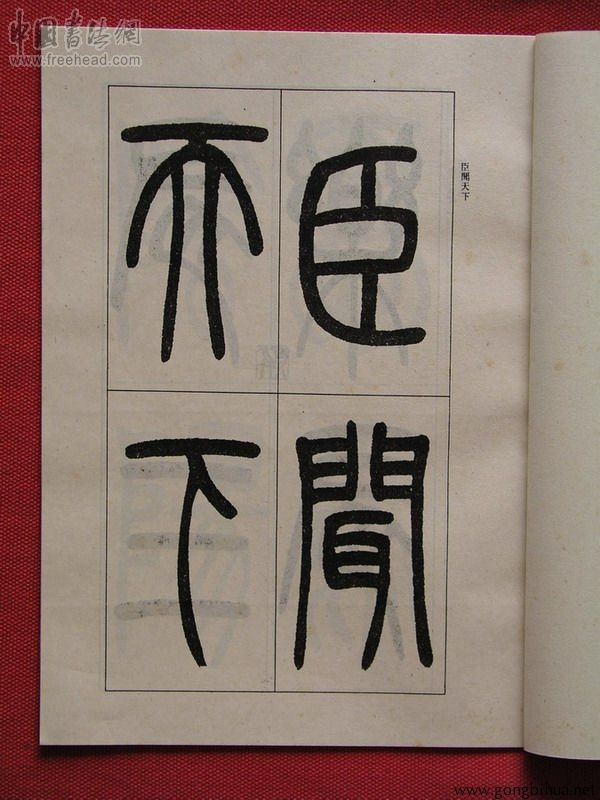 中国书法網
www.freehead.com
臣聞天下
臣聞
天下
www.gongbihua.net